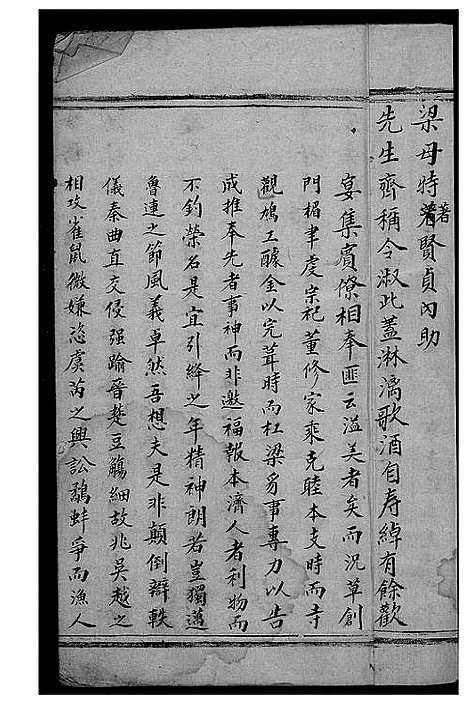 梁母時著賢貞內助
先生齊稱令淑此蓋淋漓歌酒自壽綽有餘歡
宴集賓僚相奉匪云溢美者矣而況草創
門楣聿虔宗祀董修家乘克睦本支時而寺
觀鳩工醵金以完葺時而杠梁身事專力以告
成推奉先者事神而非邀福報本濟人者利物而
不釣榮名是宜引繹之年精神朗若豈獨邁
魯連之節風義卓然吾想夫是非顛倒辯軼
儀秦曲直交侵强踰晉楚豆觴細故兆吳越之
相攻雀鼠微嫌恣虞芮之興訟鷸蚌爭而漁人